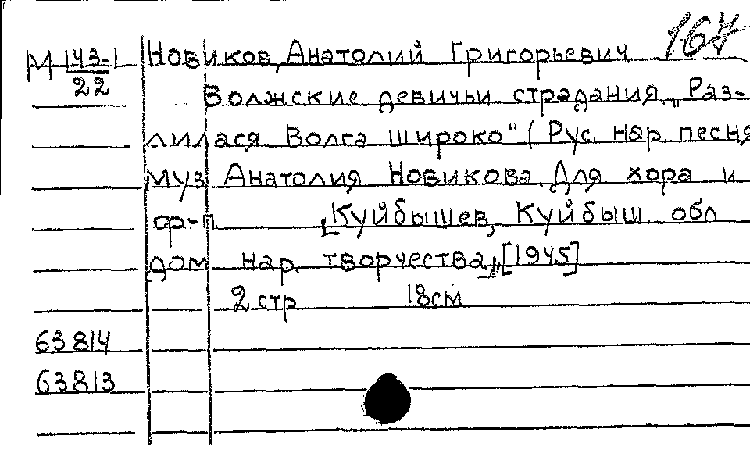 167
М 143-1 Новиков, Анатолий Григорьевич
22
Волжские девичьи страдания "Раз-
лилася Волга широко" (Рус. нар песня
муз Анатолия Новикова. Для хора и
ф-п. [Куйбышев, Куйбыш. обл
дом нар. творчества], [1945]
2 стр 18см
63814
63813